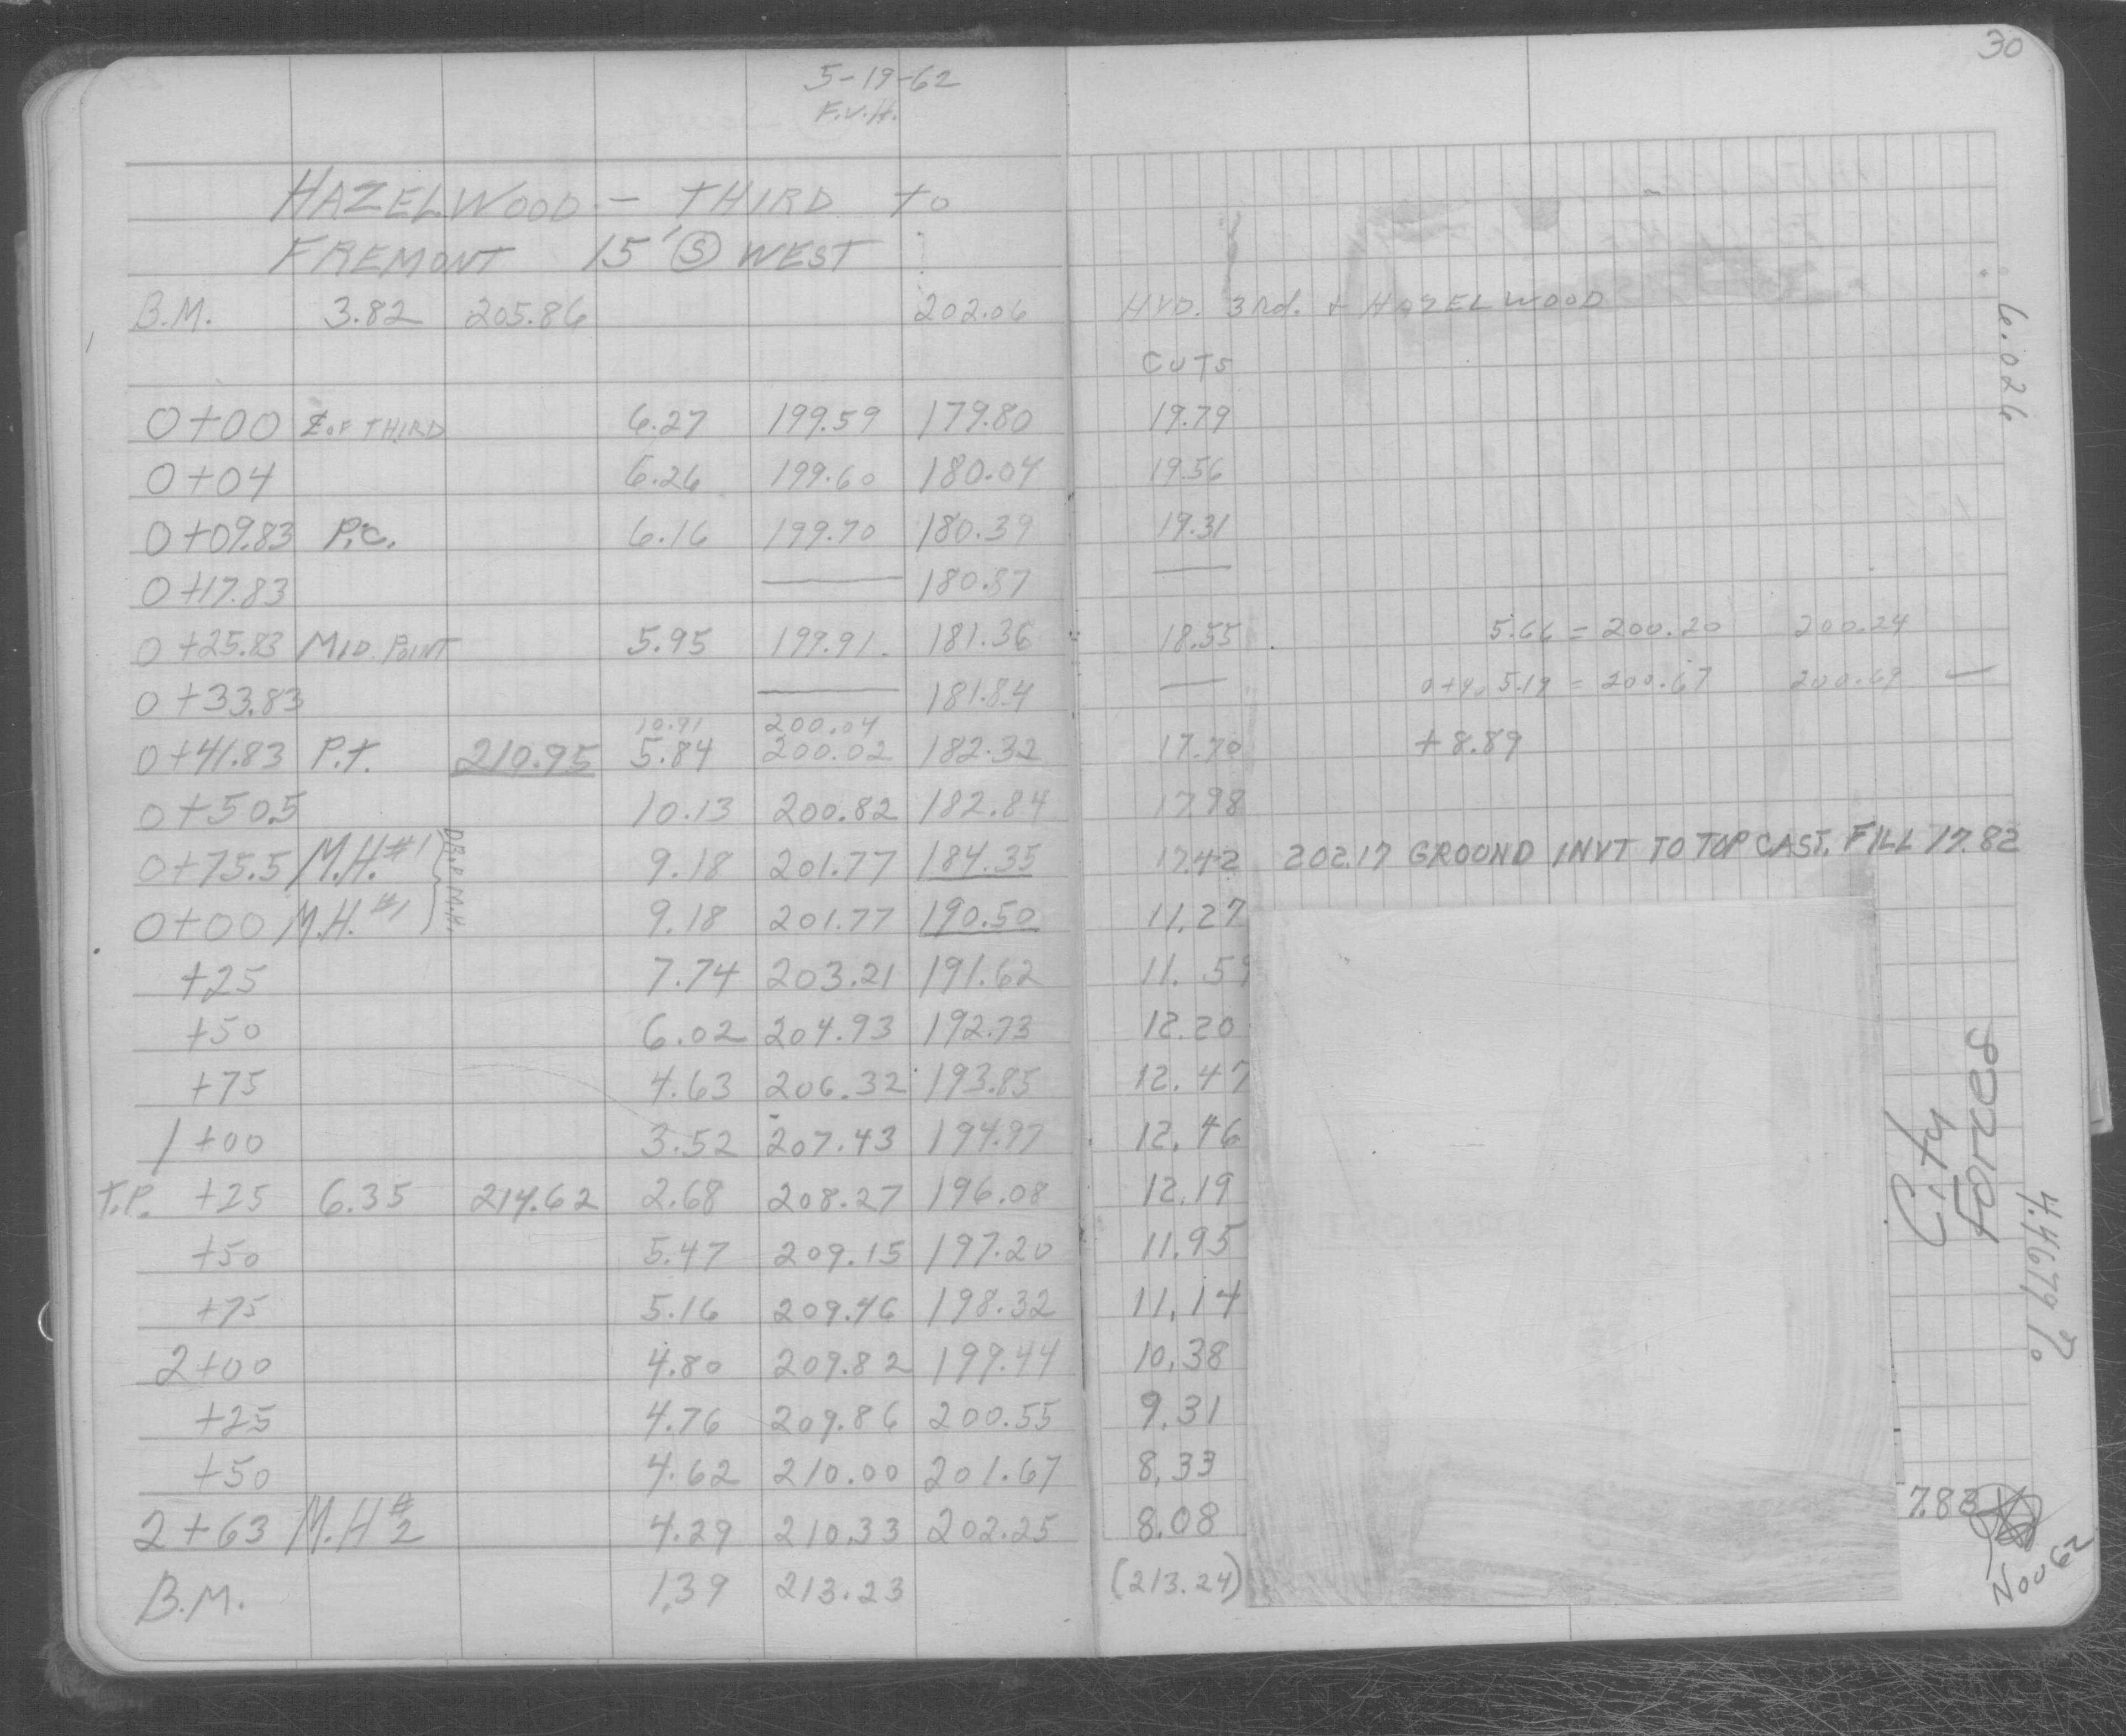 30
5-19-62
F.V.H.
HAZELWOOD - THIRD to
FREMONT 15' Ⓢ WEST
B.M. 3.82 205.86 202.06 HYD. 3rd. + HAZELWOOD
CUTS
0+00 ℄ OF THIRD 6.27 199.59 179.80 19.79
0+04 6.26 199.60 180.04 19.56
0+09.83 P.C. 6.16 199.70 180.39 19.31
0+17.83 — 180.87 —
0+25.83 MID. POINT 5.95 199.91 181.36 18.55 5.66 = 200.20 200.24
0+33.83 — 181.84 — 5.19 = 200.67 200.69 ✓
10.91 200.04
0+41.83 P.T. 210.95 5.84 200.02 182.32 17.70 +8.89
0+50.5 10.13 200.82 182.84 17.98
0+75.5 M.H.#1 9.18 201.77 184.35 17.42 202.17 GROUND INVT TO TOP CAST. FILL 17.82
0+00 M.H.#1 9.18 201.77 190.50 11.27
DROP M.H.
+25 7.74 203.21 191.62 11.59
+50 6.02 204.93 192.73 12.20
+75 4.63 206.32 193.85 12.47
1+00 3.52 207.43 194.97 12.46
T.P. +25 6.35 214.62 2.68 208.27 196.08 12.19
+50 5.47 209.15 197.20 11.95
+75 5.16 209.46 198.32 11.14
2+00 4.80 209.82 199.44 10.38
+25 4.76 209.86 200.55 9.31
+50 4.62 210.00 201.67 8.33
2+63 M.H #2 4.29 210.33 202.25 8.08 7.83
B.M. 1.39 213.23 (213.24)
6.026
City
Forces
4.4679 %
Nov 62